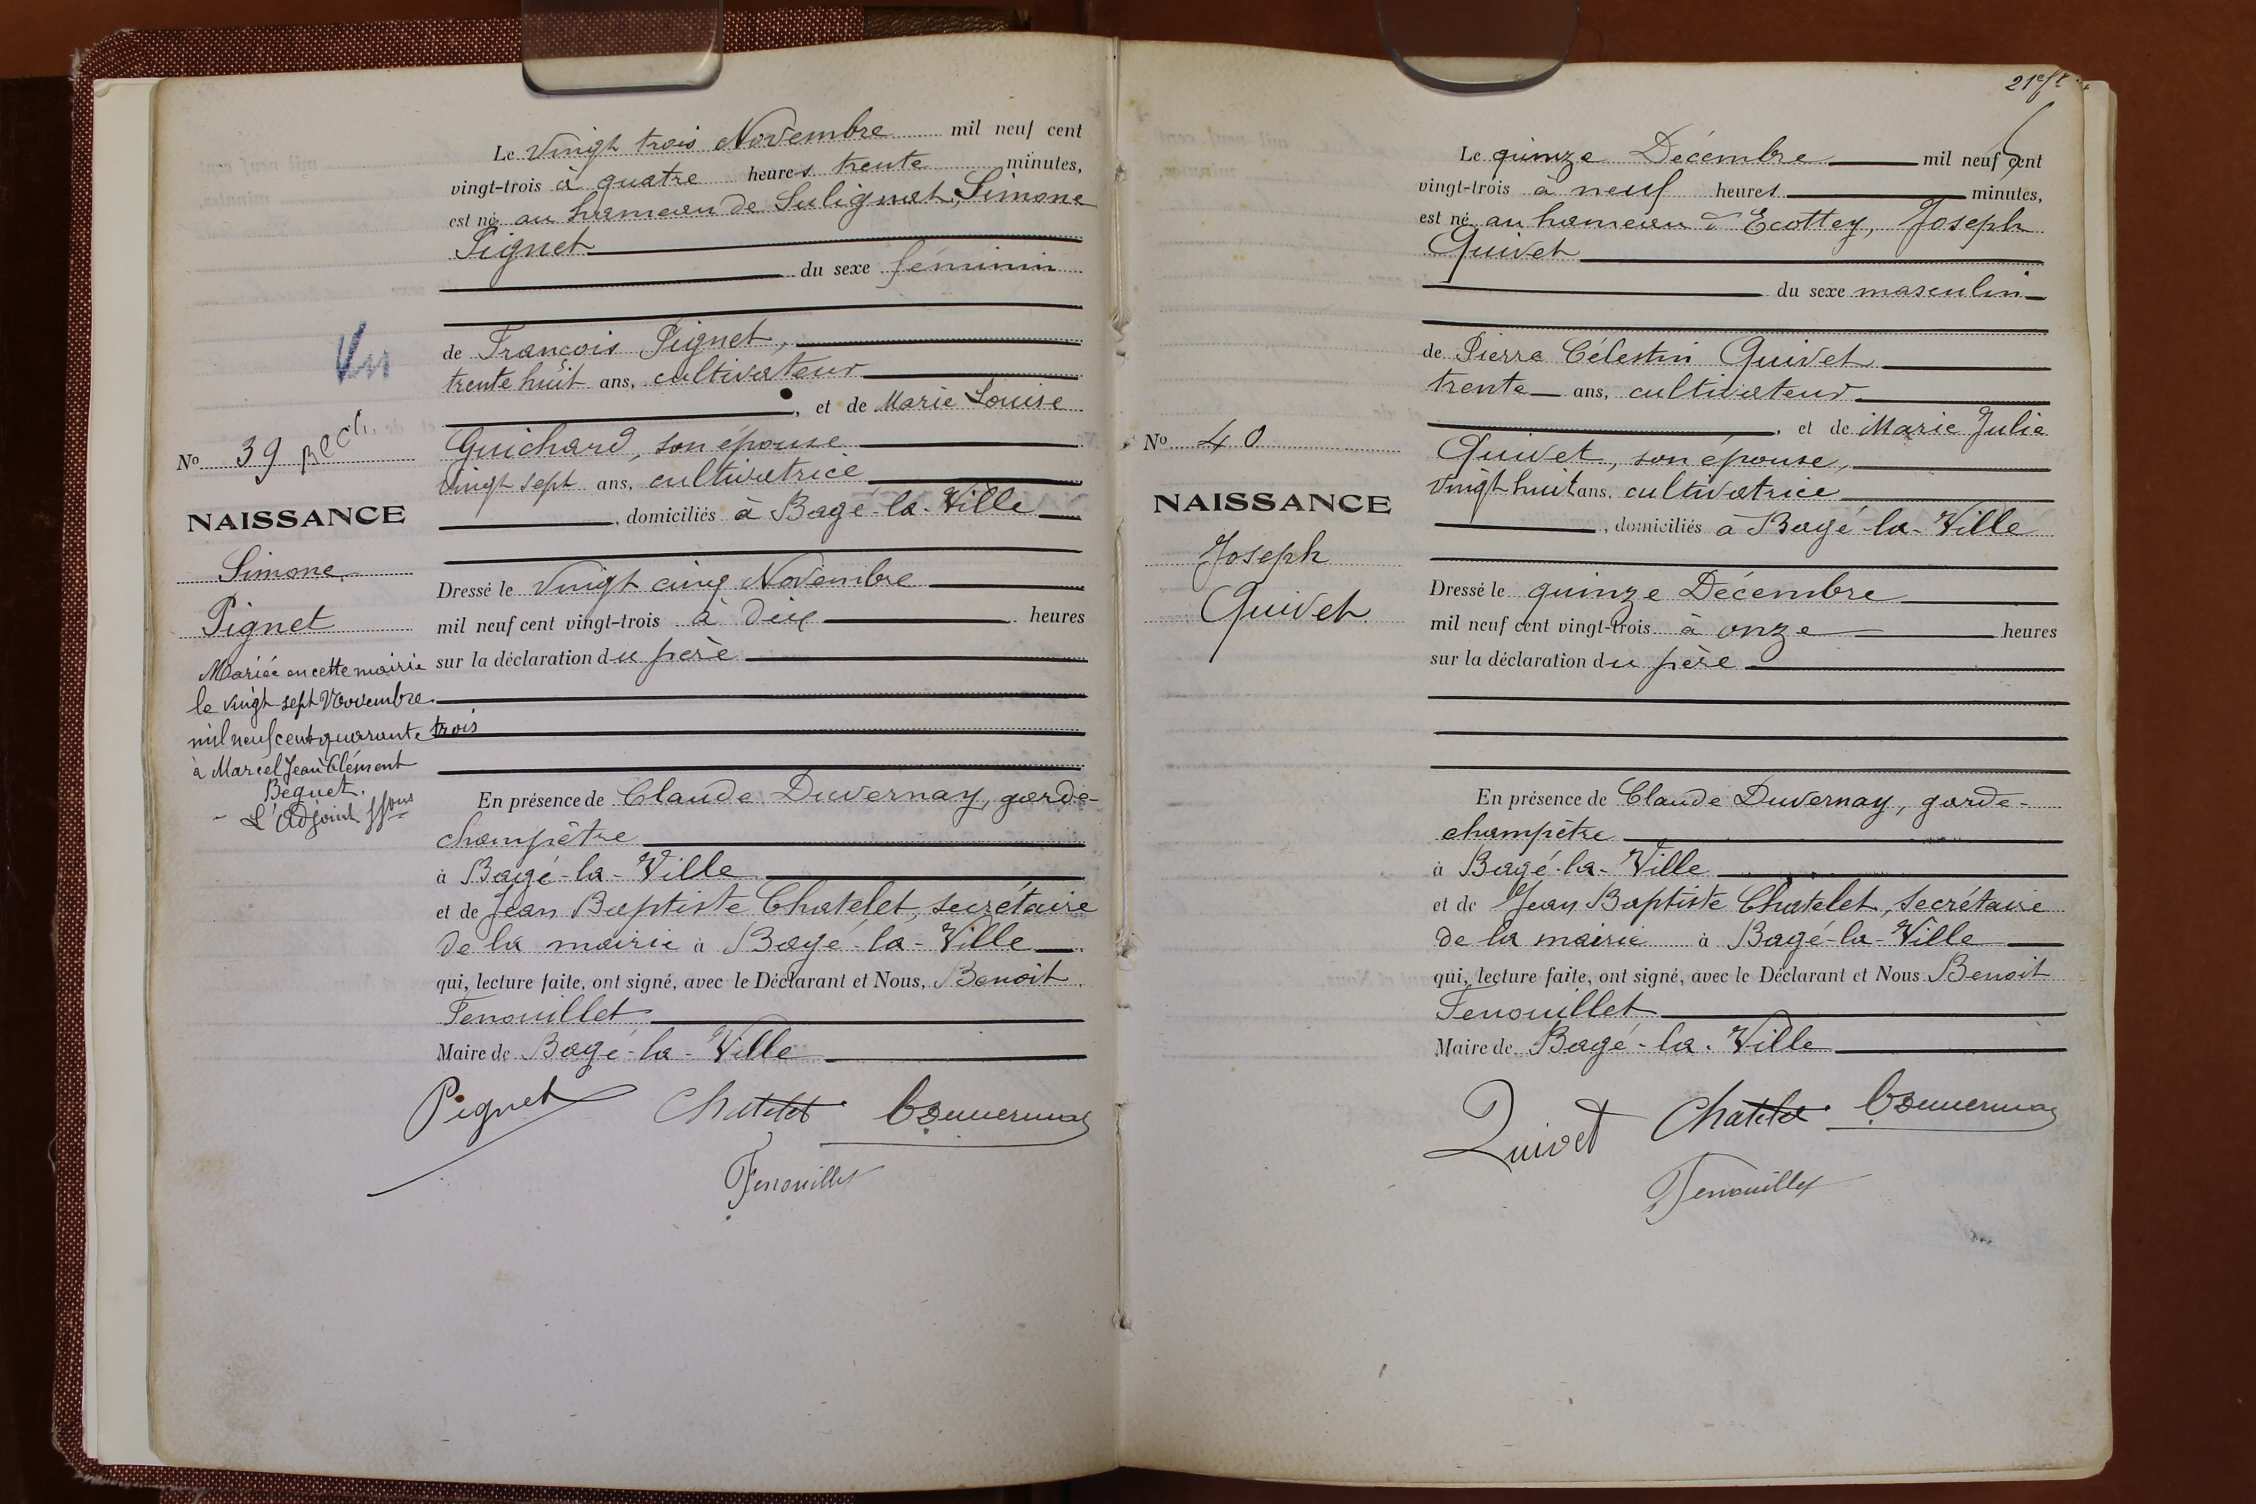 Le vingt trois Novembre mil neuf cent
vingt-trois à quatre heures trente minutes,
est né au hameau de Sulignat, Simone
Pignet
du sexe féminin
de François Pignet,
trente huit ans, cultivateur
, et de Marie Louise
Guichard, son épouse
vingt sept ans, cultivatrice
, domiciliés à Bagé-la-Ville
Dressé le vingt cinq Novembre
mil neuf cent vingt-trois à dix heures
sur la déclaration du père
En présence de Claude Duvernay, garde-
champêtre
à Bagé-la-Ville
et de Jean Baptiste Chatelet, secrétaire
de la mairie à Bagé-la-Ville
qui, lecture faite, ont signé, avec le Déclarant et Nous, Benoit
Fenouillet
Maire de Bagé-la-Ville
Pignet Chatelet C Duvernay
Fenouillet
Vu
No 39
NAISSANCE
Simone
Pignet
Mariée en cette mairie
le vingt sept Novembre
mil neuf cent quarante trois
à Marcel Jean Clément
Béguet.
L'Adjoint
21e
Le quinze Décembre mil neuf cent
vingt-trois à neuf heures minutes,
est né au hameau d'Ecottey, Joseph
Quivet
du sexe masculin
de Pierre Célestin Quivet
trente ans, cultivateur
, et de Marie Julie
Quivet, son épouse,
vingt huit ans, cultivatrice
, domiciliés à Bagé-la-Ville
Dressé le quinze Décembre
mil neuf cent vingt-trois à onze heures
sur la déclaration du père
En présence de Claude Duvernay, garde-
champêtre
à Bagé-la-Ville
et de Jean Baptiste Chatelet, secrétaire
de la mairie à Bagé-la-Ville
qui, lecture faite, ont signé, avec le Déclarant et Nous Benoit
Fenouillet
Maire de Bagé-la-Ville
Quivet Chatelet C Duvernay
Fenouillet
No 40
NAISSANCE
Joseph
Quivet